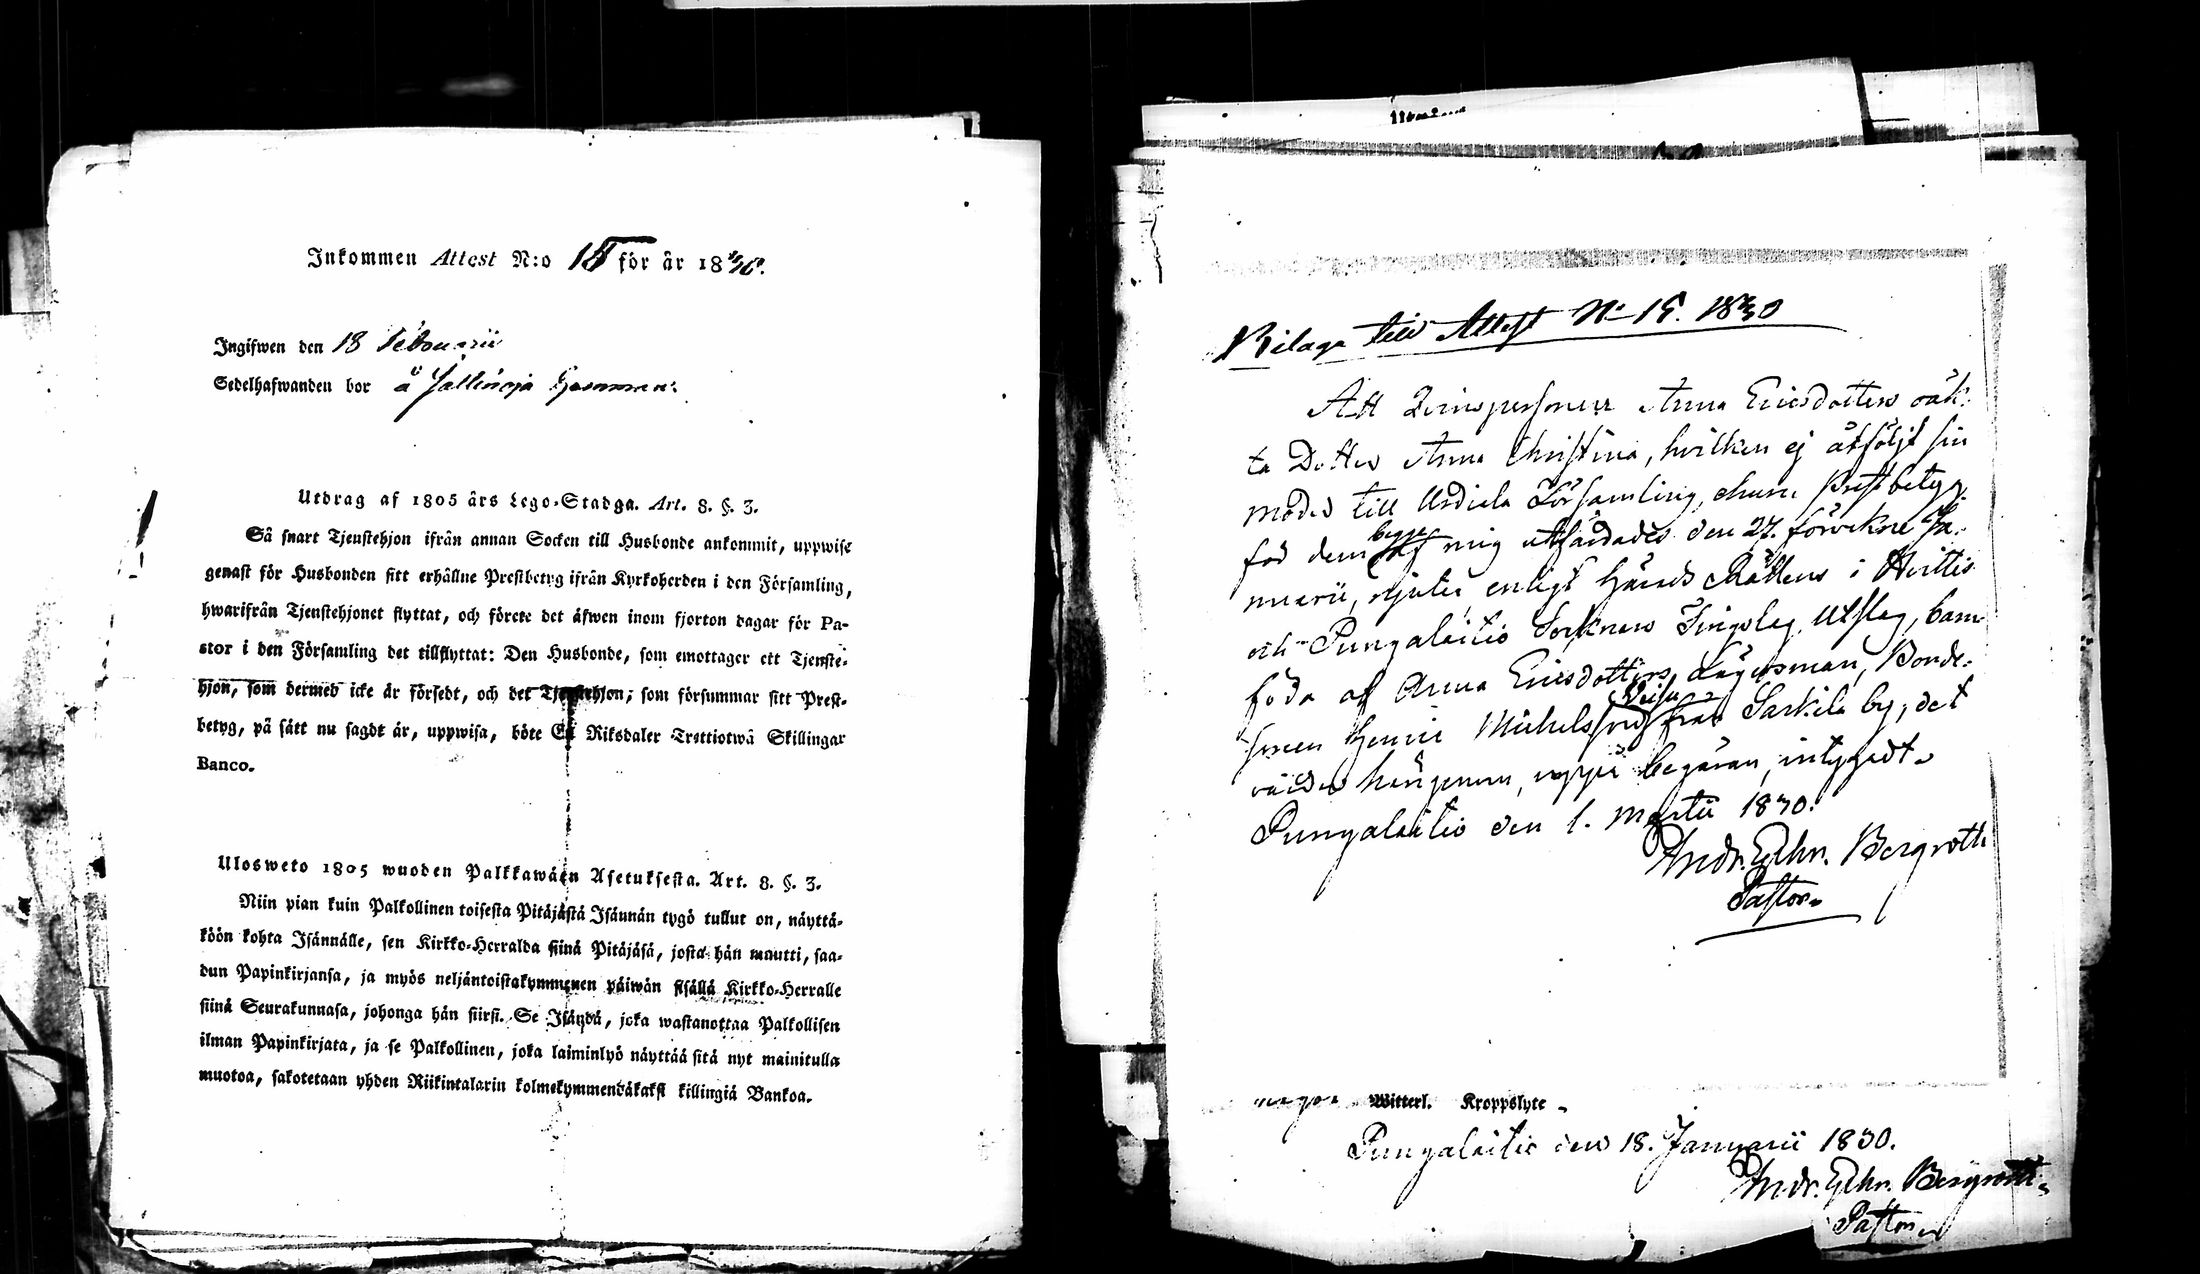 Inkommen Attest N:o 15 för år 1830.
Ingifwen den 18 Februarii
Sedelhafwanden bor å
Utdrag af 1805 års Lego-Stadga. Art. 8. §. 3.
Så snart Tjenstehjon ifrån annan Socken till Husbonde ankommit, uppwise
genast för Husbonden sitt erhållne Prestbetyg ifrån Kyrkoherden i den Församling,
hwarifrån Tjenstehjonet flyttat, och förete det äfwen inom fjorton dagar för Pa-
stor i den Församling det tillflyttat: Den Husbonde, som emottager ett Tjenste-
hjon, som dermed icke är försedt, och det Tjenstehjon, som försummar sitt Prest-
betyg, på sätt nu sagdt är, uppwisa, böte En Riksdaler Trettiotwå Skillingar
Banco.
Ulosweto 1805 wuoden Palkkawäen Asetuksesta. Art. 8. §. 3.
Niin pian kuin Palkollinen toisesta Pitäjästä Isännän tygö tullut on, näyttä-
köön kohta Isännälle, sen Kirkko-Herralda siinä Pitäjäsä, josta hän muutti, saa-
dun Papinkirjansa, ja myös neljäntoistakymmenen päiwän sisällä Kirkko-Herralle
siinä Seurakunnasa, johonga hän siirsi. Se Isändä, joka wastanottaa Palkollisen
ilman Papinkirjata, ja se Palkollinen, joka laiminlyö näyttää sitä nyt mainitulla
muotoa, sakotetaan yhden Riikintalarin kolmekymmendäkaksi killingiä Bankoa.
Bilaga till Attest N:o 15. 1830
Att Qvinspersonen Anna Ericsdotters oäk-
ta Dotter Anna Christina, hvilken ej åtföljt sin
moder till Urdiala Församling, ehuru Prestbetyg
för dem begge af mig utfärdades den 27. förvekne Ja-
nuarii, njuter enligt Härads Rättens i Hvittis
och Pungalaitio Socknars Tingslag Utslag, barn-
föda af Anna Ericsdotters Lägersman, Bonde-
sonen Henric Michelsson från Sarkila by; det
varder härigenom, uppå begäran, intygadt.
Pungalaitio den 1. Martii 1830.
Andr. Ghr. Bergroth
Pastor.
Witterl. Kroppslyte
Pungalaitio den 18. Januarii 1830.
Andr. Ghr. Bergroth.
Pastor